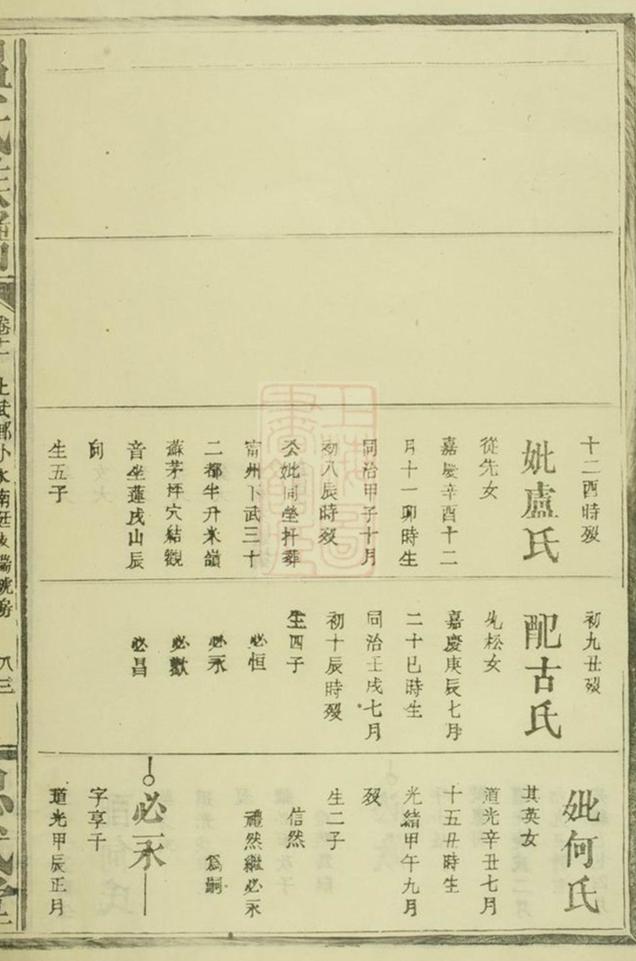 十二酉時歿
妣盧氏
從先女
嘉慶辛酉十二
月十一卯時生
同治甲子十月
初八辰時歿
公妣同坐扦葬
甯州下武三十
二都牛升米嶺
蘇茅坪穴結觀
音坐蓮戌山辰
向
生五子
初九丑歿
配古氏
先松女
嘉慶庚辰七月
二十巳時生
同治壬戌七月
初十辰時歿
生四子
必恒
必永
必歡
必昌
妣何氏
其英女
道光辛丑七月
十五丑時生
光緒甲午九月
歿
生二子
信然
禮然繼必永
為嗣
必永
字享千
道光甲辰正月
八三